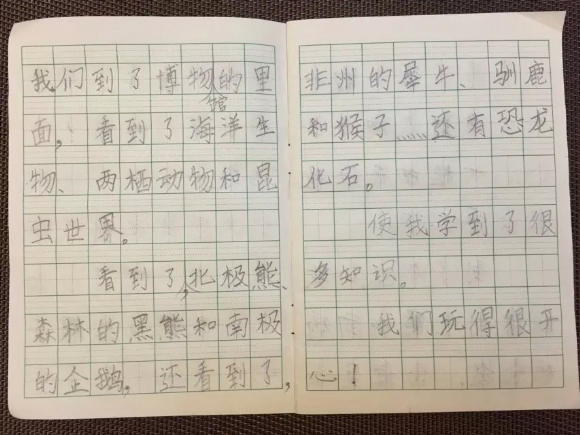 我们到了博物馆的里
面，看到了海洋生
物、两栖动物和昆
虫世界。
看到了，北极熊、
森林的黑熊和南极
的企鹅。还看到了，
非州的犀牛、驯鹿
和猴子……还有恐龙
化石。
使我学到了很
多知识。
我们玩得很开
心！